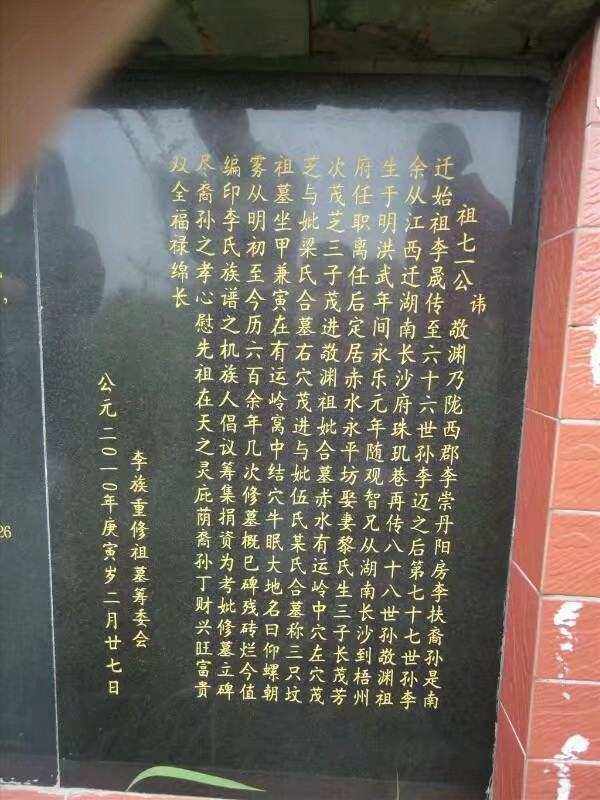 祖七一公讳敬渊乃陇西郡李崇丹阳房李扶裔孙是南
迁始祖李晟传至六十六世孙李迈之后第七十七世孙李
余从江西迁湖南长沙府珠玑巷再传八十八世孙敬渊祖
生于明洪武年间永乐元年随观智兄从湖南长沙到梧州
府任职离任后定居赤水永平坊娶妻黎氏生三子长茂芳
次茂芝三子茂进敬渊祖妣合墓赤水有运岭中穴左穴茂
芝与妣梁氏合墓右穴茂进与妣伍氏某氏合墓称三只坟
祖墓坐甲兼寅在有运岭窝中结穴牛眠大地名曰仰螺朝
雾从明初至今历六百余年几次修墓概已碑残砖烂今值
编印李氏族谱之机族人倡议筹集捐资为考妣修墓立碑
尽裔孙之孝心慰先祖在天之灵庇荫裔孙丁财兴旺富贵
双全福禄绵长
李族重修祖墓筹委会
公元二〇一〇年庚寅岁二月廿七日
26